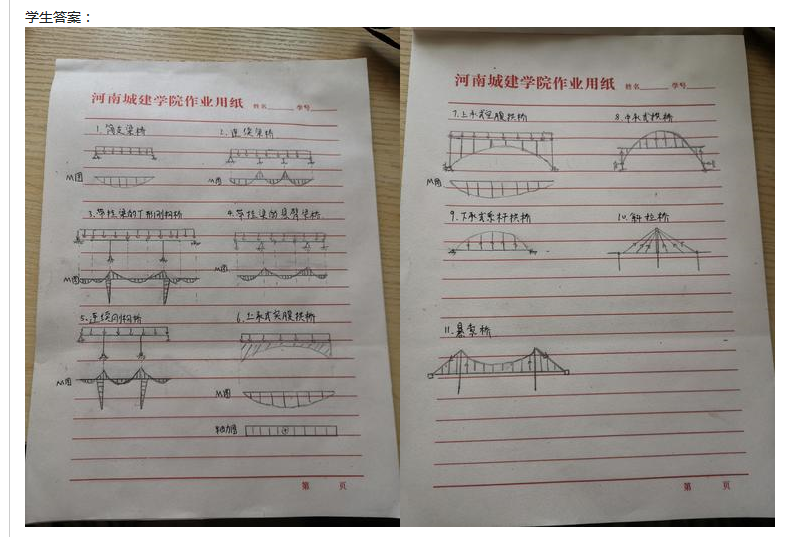 学生答案：
河南城建学院作业用纸 姓名 学号
1.简支梁桥 2.连续梁桥
M图 M图
3.带挂梁的T形刚构桥 4.带挂梁的悬臂梁桥
M图 M图
5.连续刚构桥 6.上承式实腹拱桥
M图
M图
轴力图
第 页
河南城建学院作业用纸 姓名 学号
7.上承式空腹拱桥 8.中承式拱桥
M图
9.下承式系杆拱桥 10.斜拉桥
11.悬索桥
第 页